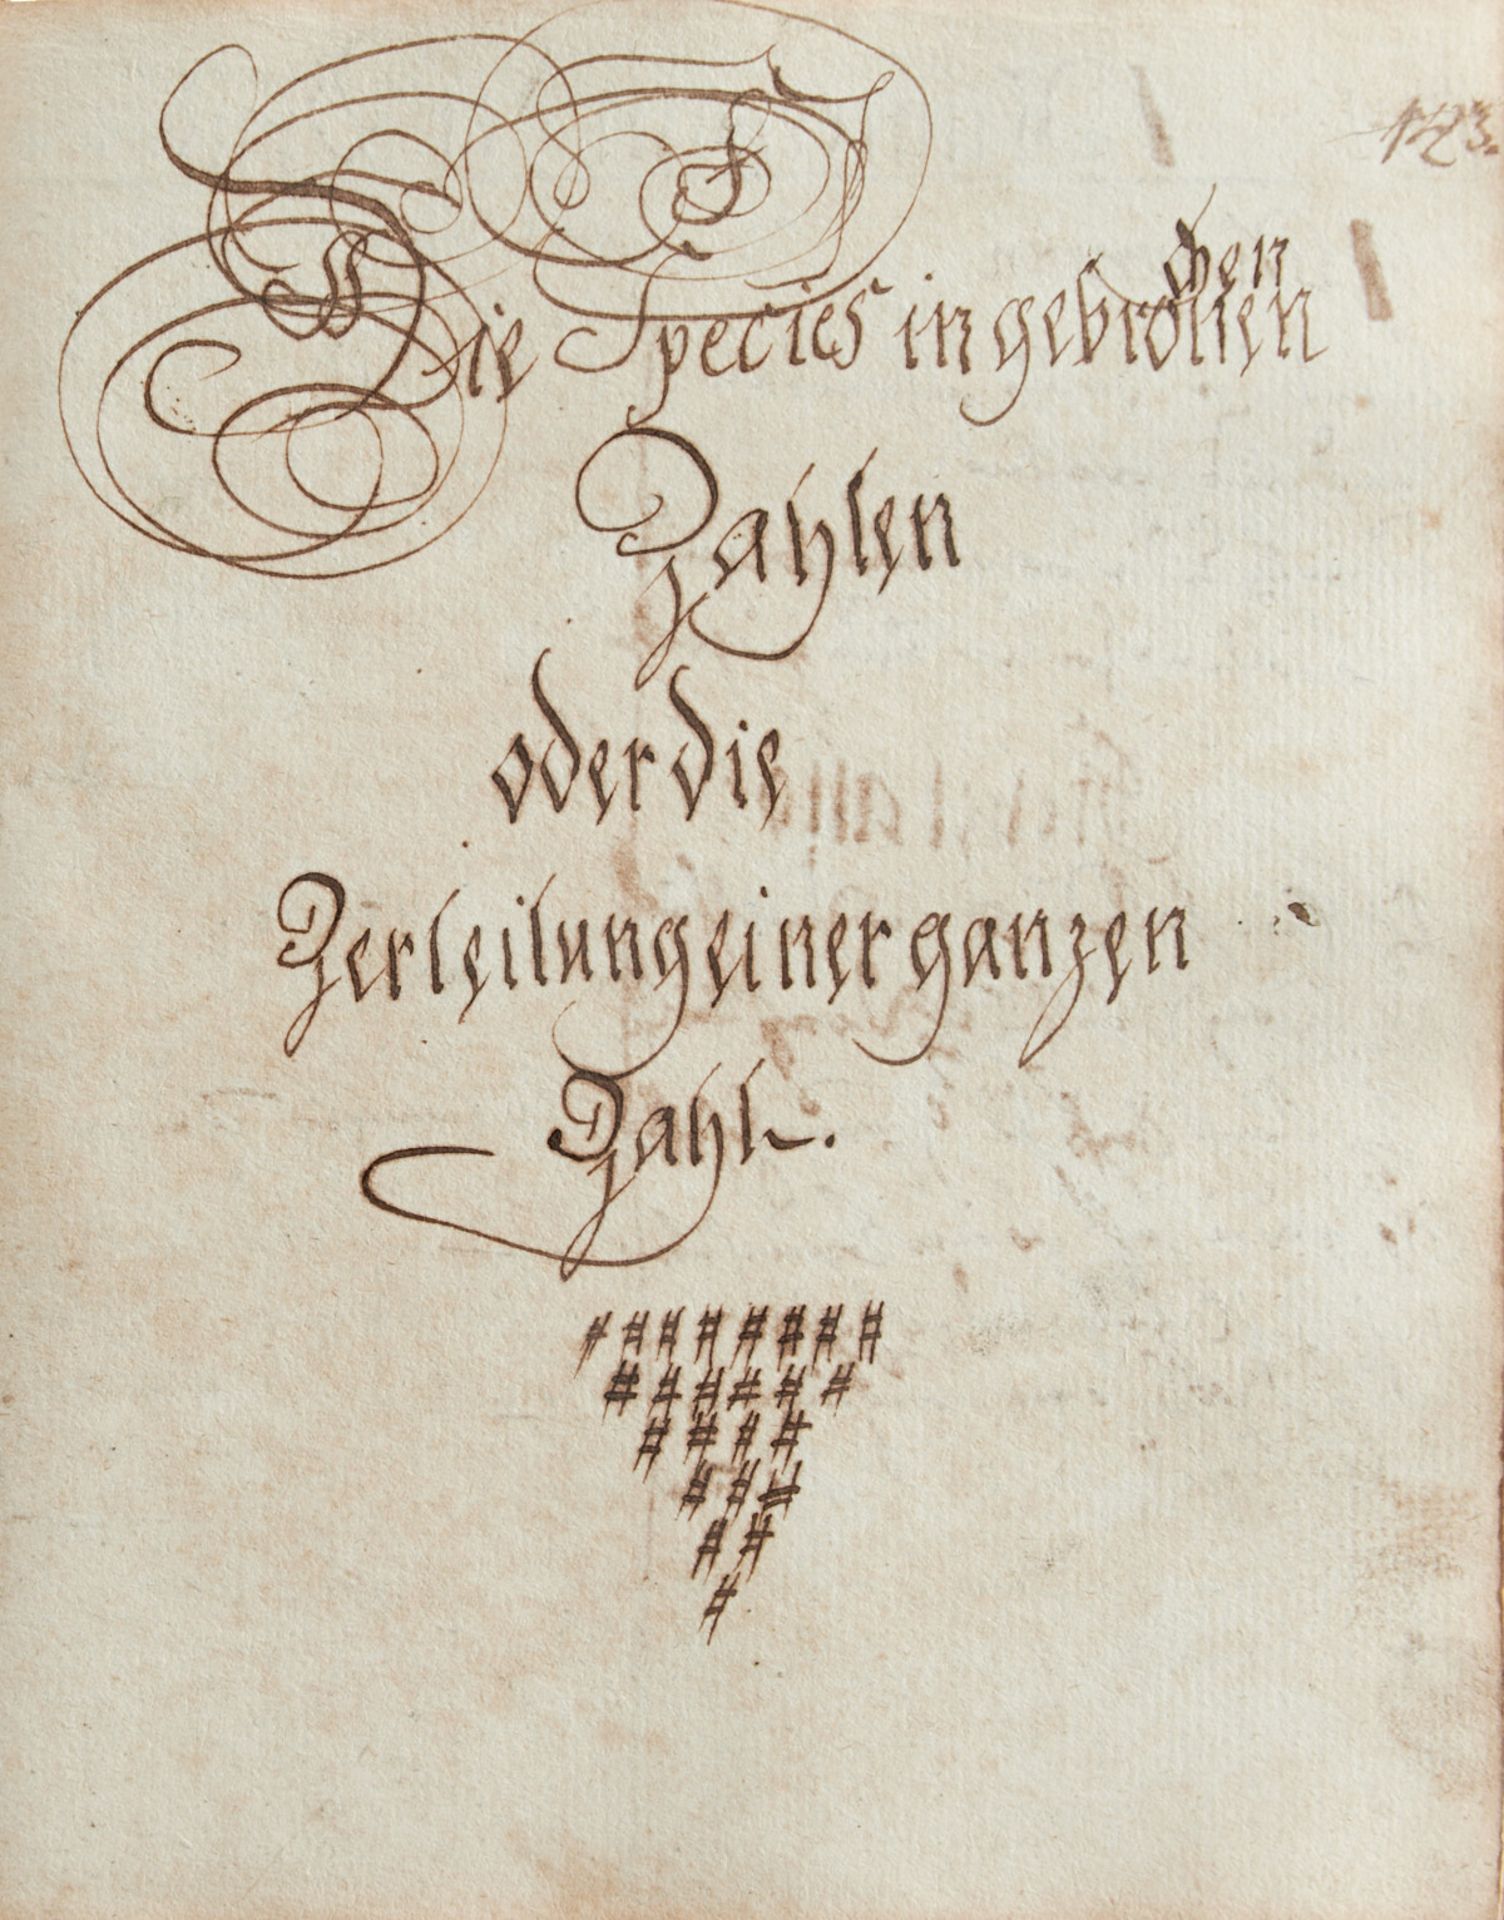 123.
Die Species in gebrochen
Zahlen
oder die
Zerteilung einer ganzen
Zahl.
# # # # # # # #
# # # # # #
# # # #
# # #
# #
#